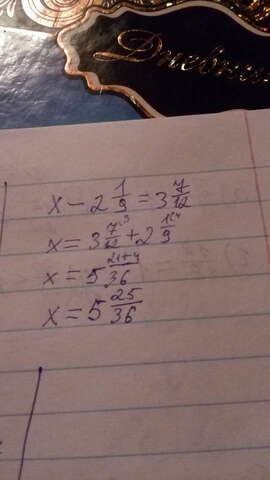 Дневник
x - 2 1/9 = 3 7/12
x = 3 7/12 ^3 + 2 1/9 ^4
x = 5 21+4/36
x = 5 25/36